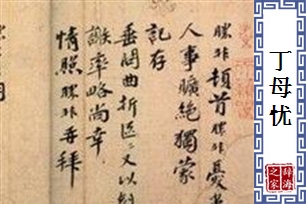 膝非頓首膝非憂
人事曠絶獨蒙
記存
垂問曲折區二又以
離率略尚幸
情照膝非再拜
丁母忧
辞海之家